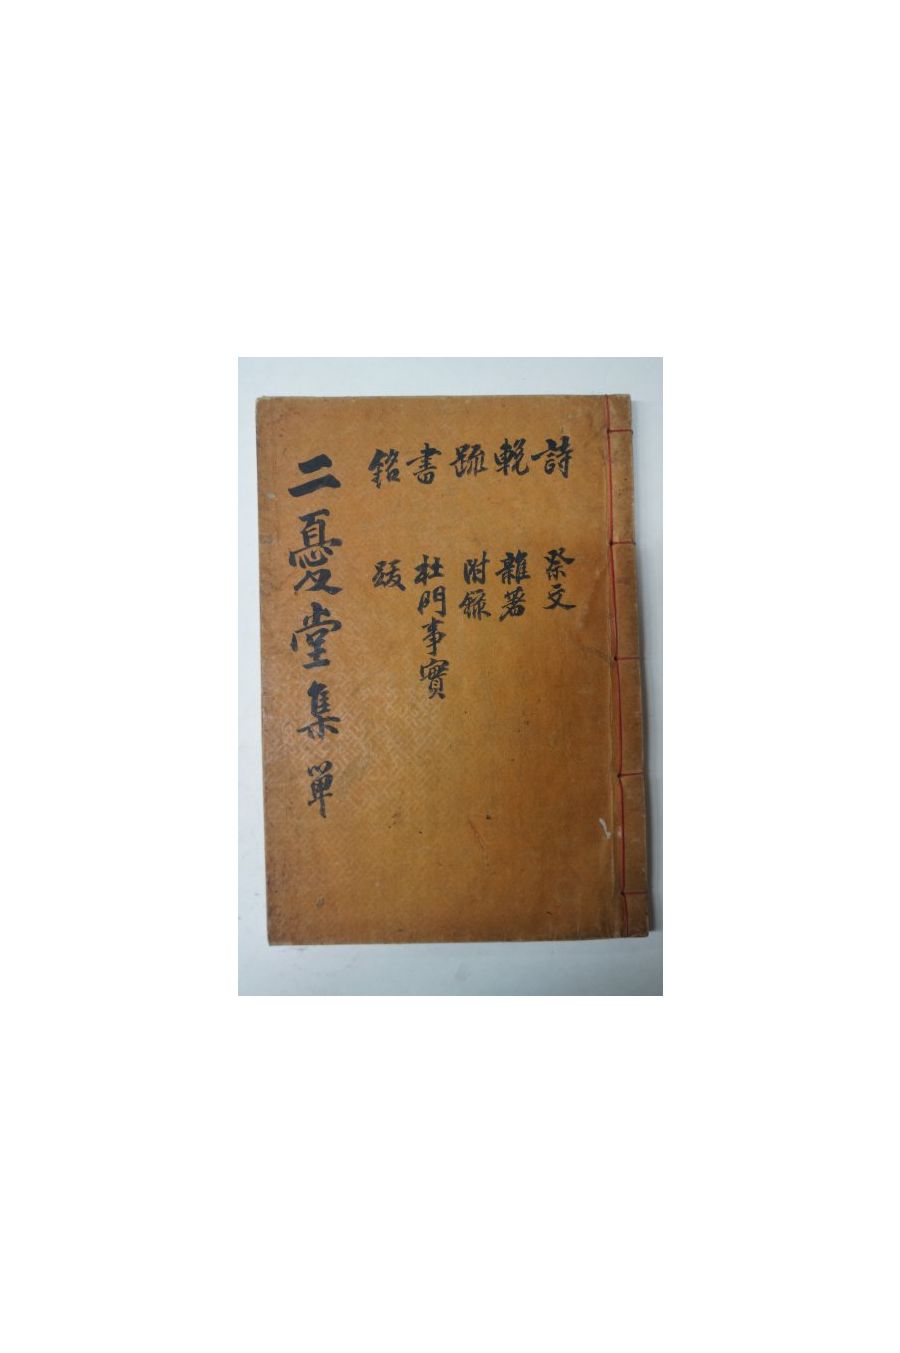 詩 祭文
輓 雜著
疏 附錄
書 杜門事實
銘 跋
二憂堂集 單